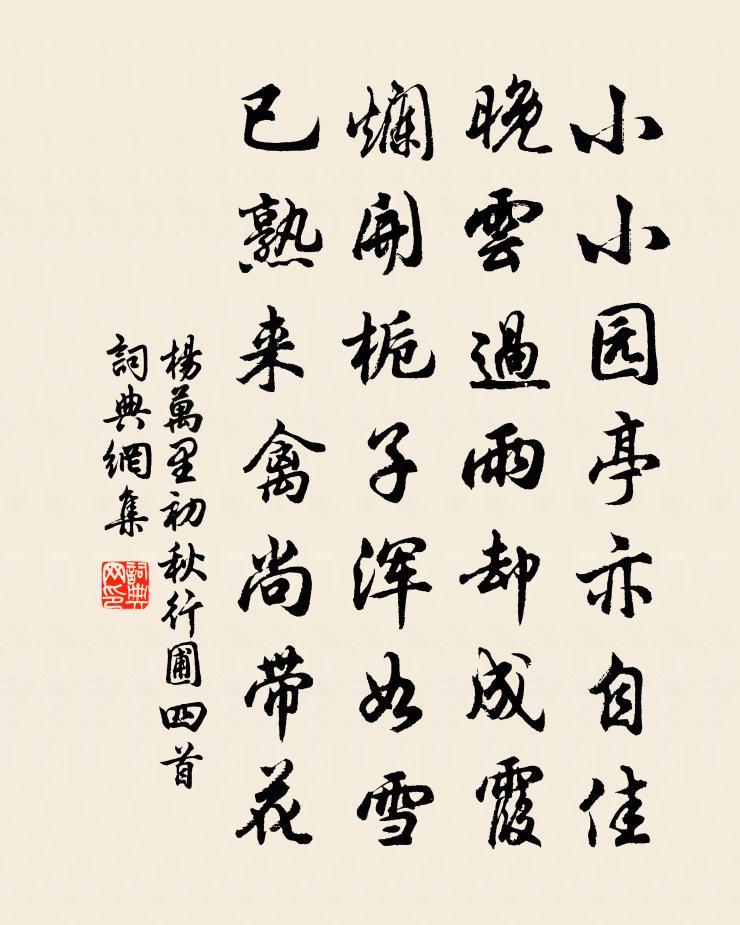 小小园亭亦自佳
晚雲過雨却成霞
爛開栀子浑如雪
已熟来禽尚带花
楊萬里初秋行圃四首
詞典網集
詞典网印